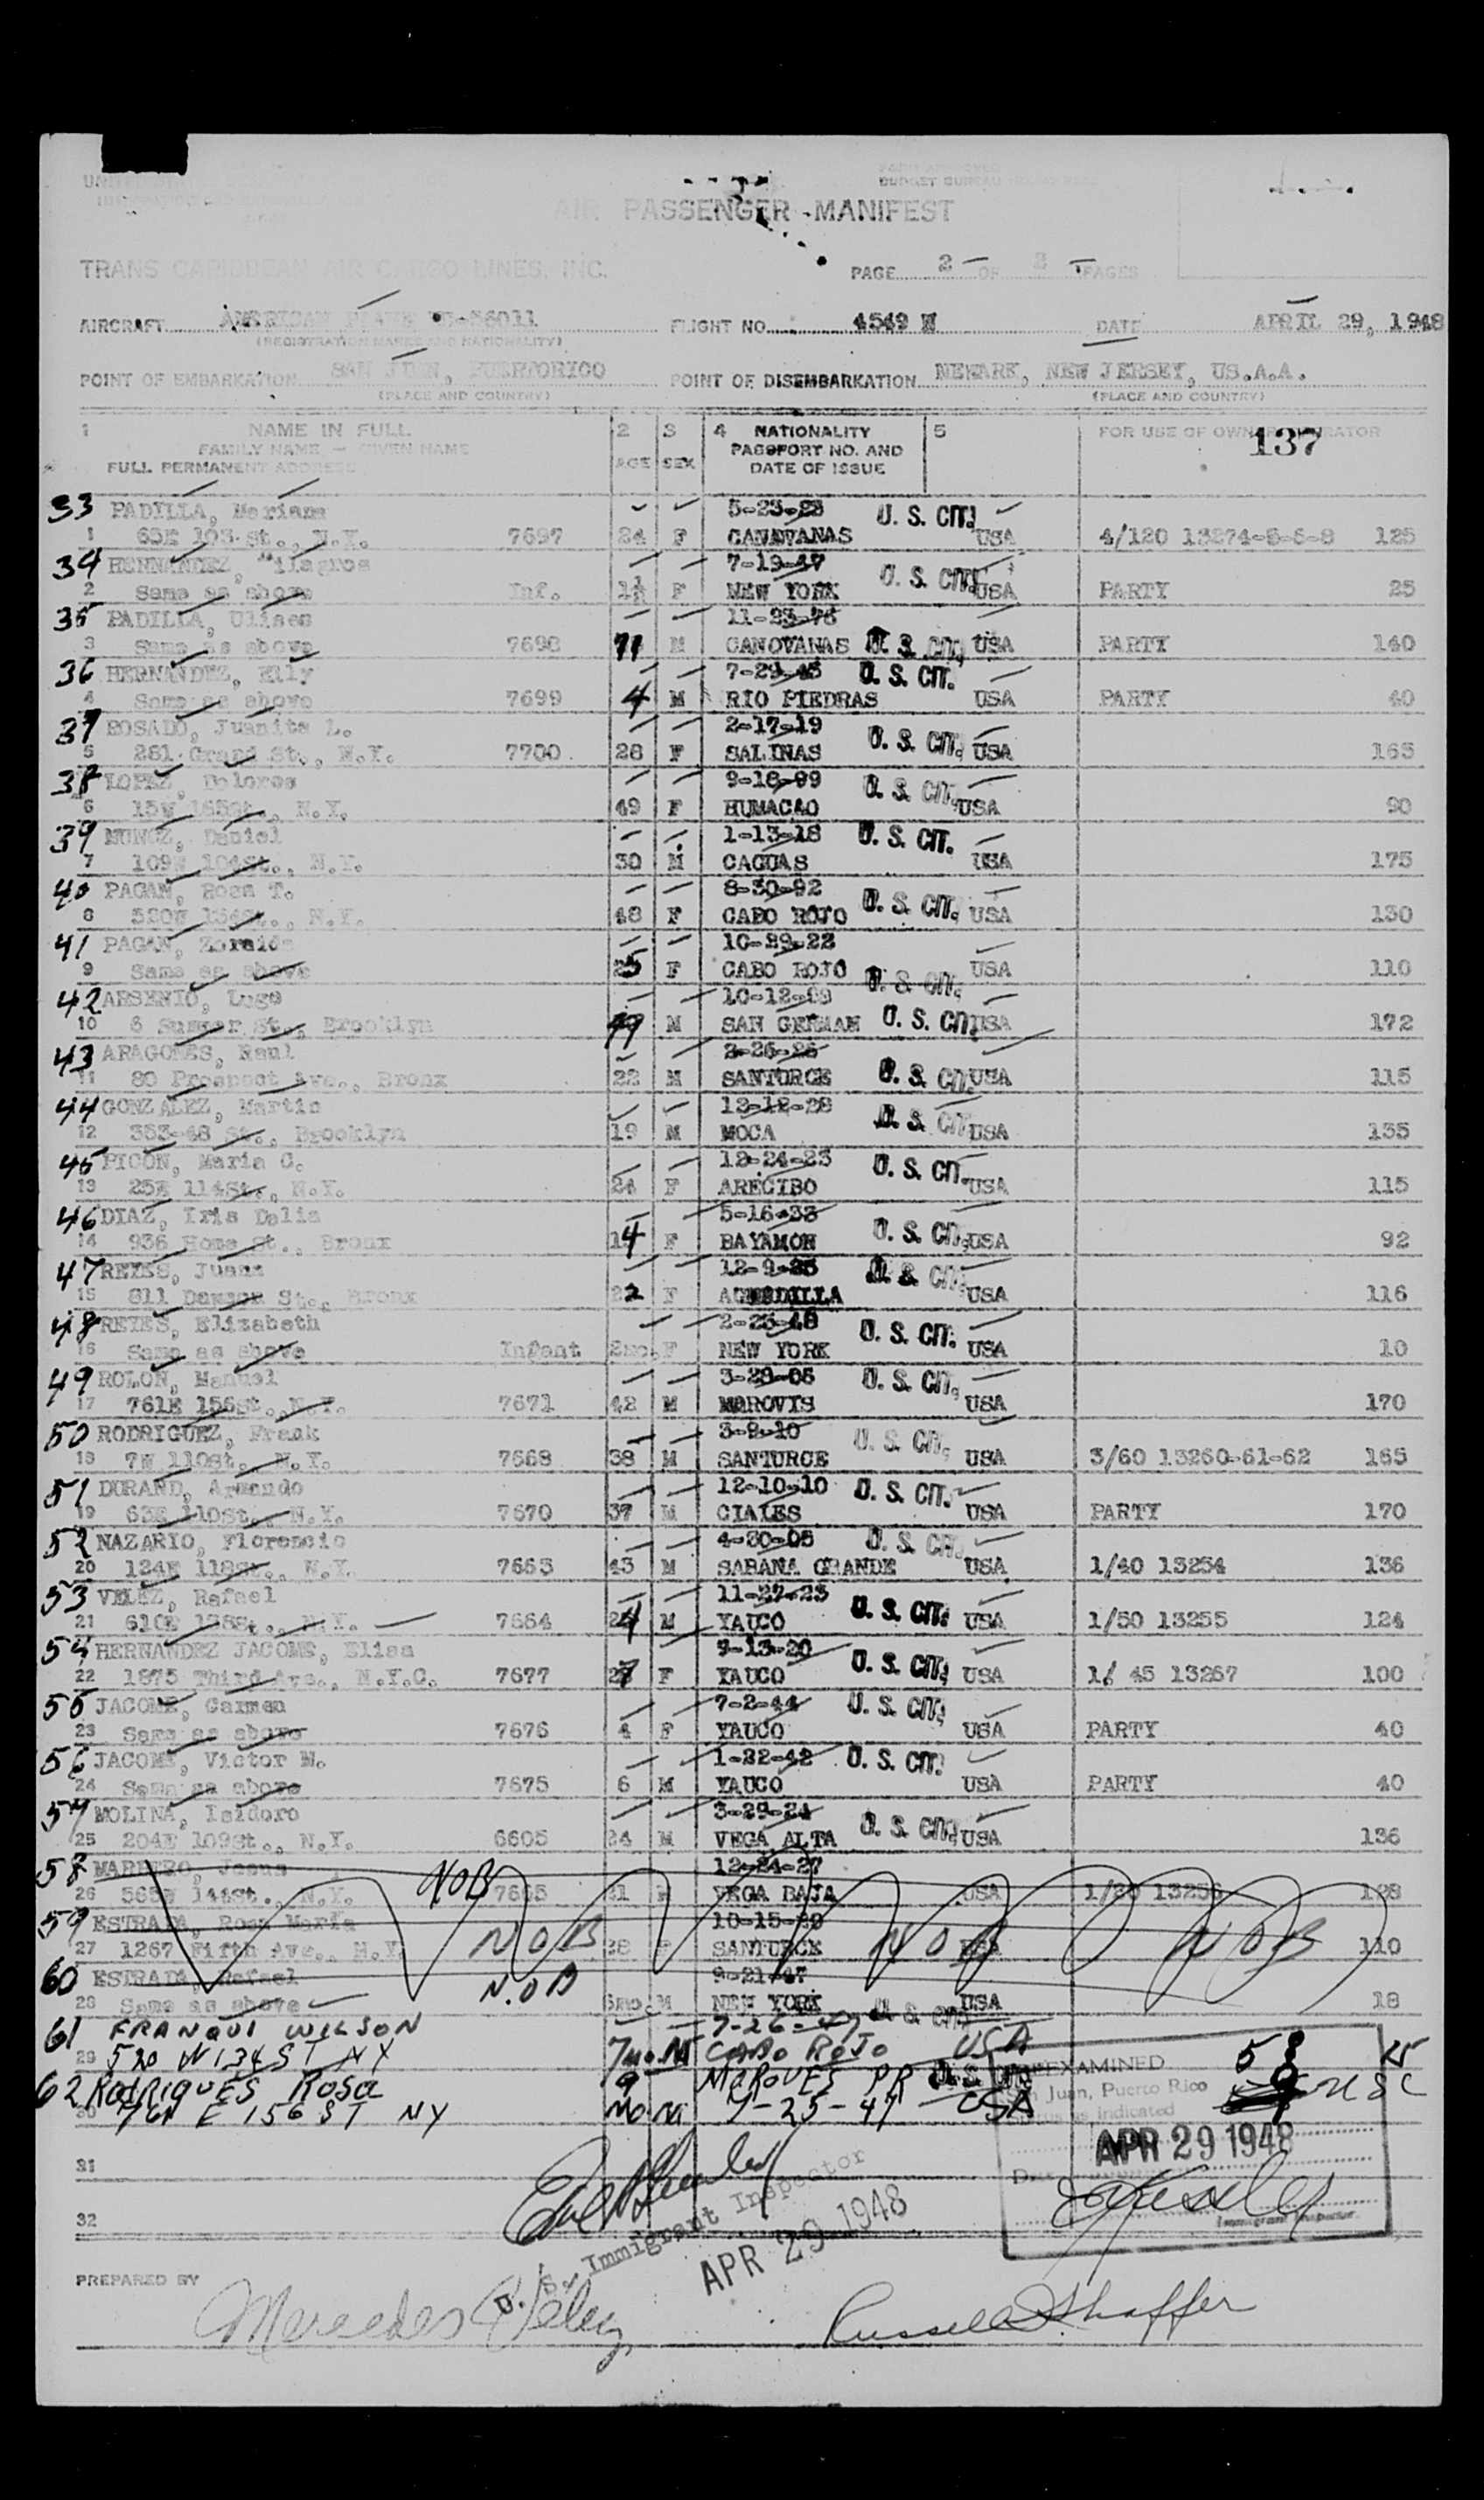 AIR PASSENGER MANIFEST
TRANS CARIBBEAN AIR CARGO LINES, INC.
PAGE 2 OF 2 PAGES
AIRCRAFT AMERICAN PLANE FLIGHT NO. 4549 N DATE APRIL 29, 1948
(REGISTRATION MARKS AND NATIONALITY)
POINT OF EMBARKATION SAN JUAN, PUERTORICO POINT OF DISEMBARKATION NEWARK, NEW JERSEY, US.A.A.
(PLACE AND COUNTRY) (PLACE AND COUNTRY)
1 NAME IN FULL 2 3 4 NATIONALITY 5 FOR USE OF OWNER OPERATOR
FAMILY NAME — GIVEN NAME PASSPORT NO. AND 137
FULL PERMANENT ADDRESS AGE SEX DATE OF ISSUE
33 PADILLA, Mariana 5-23-23 U. S. CIT.
1 65E 103 St., N.Y. 7697 24 F CANOVANAS USA 4/120 125
34 HERNANDEZ, Milagros 7-19-47 U. S. CIT.
2 Same as above Inf. F NEW YORK USA PARTY 25
35 PADILLA, Ulises 11-23-76
3 Same as above 7698 71 M CANOVANAS U. S. CIT. USA PARTY 140
36 HERNANDEZ, Elly U. S. CIT.
4 Same as above 7699 4 M RIO PIEDRAS USA PARTY 40
37 ROSADO, Juanita L. 2-17-19
5 281 Grand St., N.Y. 7700 28 F SALINAS U. S. CIT. USA 165
38 LOPEZ, Dolores 9-18-99 U. S. CIT.
6 15W N.Y. 49 F HUMACAO USA 90
39 MUNOZ, Daniel 1-13-18 U. S. CIT.
7 109W 104St., N.Y. 30 M CAGUAS USA 175
40 PAGAN, Rosa T. 8-30-92
8 N.Y. 48 F CABO ROJO U. S. CIT. USA 130
41 PAGAN, Zoraida 10-29-22
9 Same as above 25 F CABO ROJO U. S. CIT. USA 110
42 ARSENIO, Lugo
10 6 Sumner St., Brooklyn 49 M SAN GERMAN U. S. CIT. USA 172
43 ARAGONES, Raul
11 80 Prospect Ave., Bronx 22 M SANTURCE U. S. CIT. USA 115
44 GONZALEZ, Martin 12-12-28
12 353-48 St., Brooklyn 19 M MOCA U. S. CIT. USA 155
45 PICON, Maria C. 12-24-23 U. S. CIT.
13 25E 114St., N.Y. 24 F ARECIBO USA 115
46 DIAZ, Iris Delia 5-16-33
14 936 Home St., Bronx 14 F BAYAMON U. S. CIT. USA 92
47 REYES, Juana 12-9-25 U. S. CIT.
15 811 Dawson St., Bronx 22 F AGUADILLA USA 116
48 REYES, Elizabeth 2-23-48 U. S. CIT.
16 Same as above Infant 2mo. F NEW YORK USA 10
49 ROLON, Manuel U. S. CIT.
17 761E 156St., N.Y. 7671 42 M MOROVIS USA 170
50 RODRIGUEZ, Frank 3-9-10 U. S. CIT.
18 7W 110St., N.Y. 7668 38 M SANTURCE USA 3/60 13260-61-62 165
51 DURAND, Armando 12-10-10 U. S. CIT.
19 63E 110St., N.Y. 7670 37 M CIALES USA PARTY 170
52 NAZARIO, Florencio 4-30-05 U. S. CIT.
20 124E 112St., N.Y. 43 M SABANA GRANDE USA 1/40 13254 136
53 VELEZ, Rafael 11-27-23
21 N.Y. 7664 24 M YAUCO U. S. CIT. USA 1/50 13255 124
54 HERNANDEZ JACOME, Elisa 9-13-20
22 1875 Third Ave., N.Y.C. 7677 27 F YAUCO U. S. CIT. USA 1/ 45 13267 100
55 JACOME, Carmen 7-2-44 U. S. CIT.
23 Same as above 7676 4 F YAUCO USA PARTY 40
56 JACOME, Victor M. 1-22-42 U. S. CIT.
24 Same as above 7675 6 M YAUCO USA PARTY 40
57 MOLINA, Isidoro 3-29-24
25 204E 109St., N.Y. 6605 24 M VEGA ALTA U. S. CIT. USA 136
58 Jesus 12-24-27
26 N.Y. NOB 21 VEGA BAJA USA 128
59 ESTRADA, Rosa Maria
27 1267 Fifth Ave., N.Y. NOB 28 F SANTURCE NOB NOB 110
60 ESTRADA, Rafael N.OB 9-21-47
28 Same as above M NEW YORK USA 18
61 FRANQUI WILSON 7-26-47
29 520 W 134 ST NY 7mo. M CABO ROJO USA 25
62 RODRIGUES ROSA 9 MAROVES PR
30 761 E 156 ST NY Mo. 7-25-47 USA
58 USC
EXAMINED
San Juan, Puerto Rico
Status as indicated
APR 29 1948
Immigrant Inspector
31
32
U. S. Immigrant Inspector
APR 29 1948
PREPARED BY
Mercedes Velez Russell Shaffer